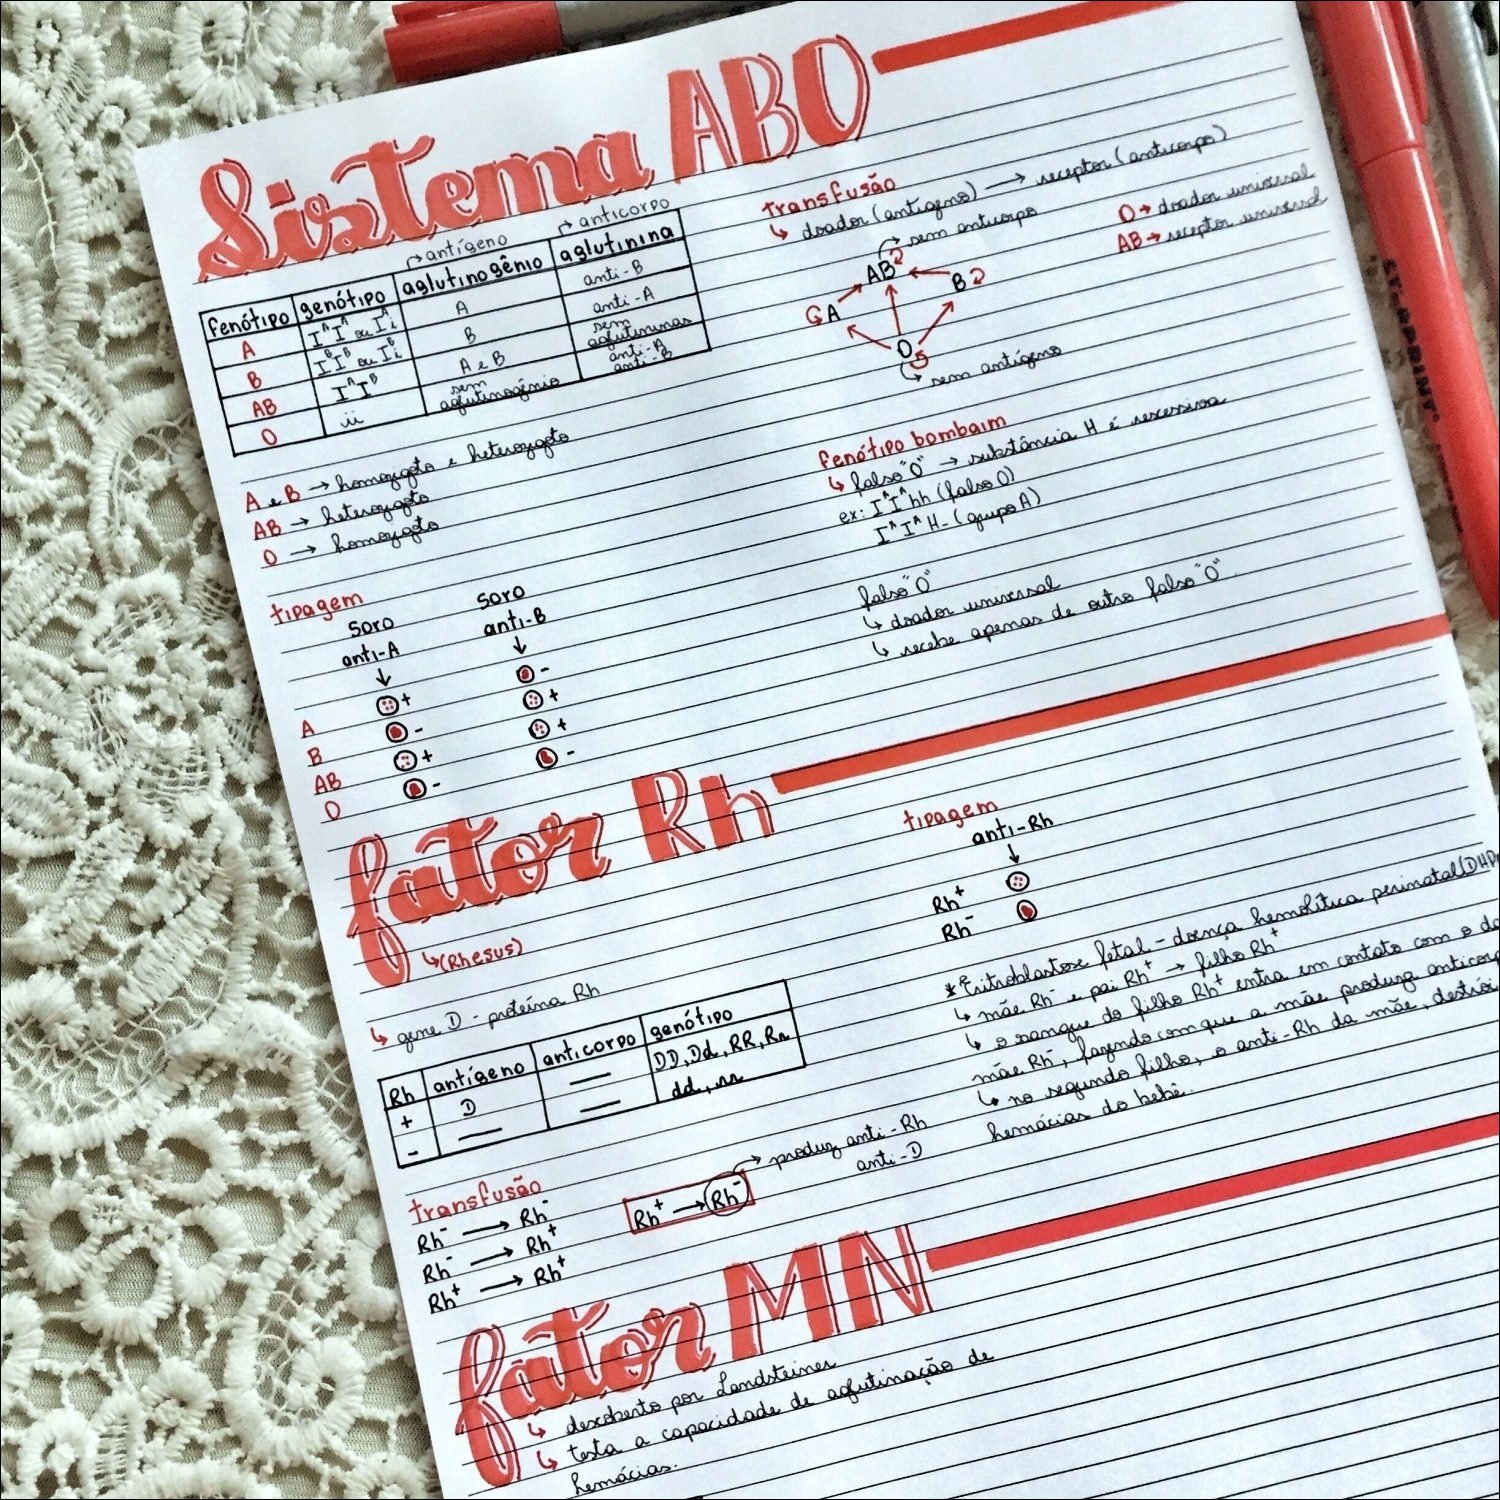 Sistema ABO
antígeno
anticorpo
fenótipo genótipo aglutinogênio aglutinina
A IᴬIᴬ ou Iᴬi A anti-B
B IᴮIᴮ ou Iᴮi B anti-A
AB IᴬIᴮ A e B sem aglutininas
O ii sem aglutinogênio anti-A anti-B
A e B → homozigoto e heterozigoto
AB → heterozigoto
O → homozigoto
transfusão
↳ doador (antígeno) → receptor (anticorpo)
sem anticorpo
O → doador universal
AB → receptor universal
AB
B
A
O
sem antígeno
fenótipo bombaim
↳ falso "O" → substância H é recessiva
ex: IᴬIᴬhh (falso O)
IᴬIᴬH_ (grupo A)
falso "O"
↳ doador universal
↳ recebe apenas de outro falso "O"
tipagem
soro anti-A
soro anti-B
A + -
B - +
AB + +
O - -
fator Rh
↳ (Rhesus)
↳ gene D - proteína Rh
Rh antígeno anticorpo genótipo
+ D — DD, Dd, RR, Rr
- — — dd, rr
transfusão
Rh⁻ → Rh⁻
Rh⁻ → Rh⁺
Rh⁺ → Rh⁺
Rh⁺ → Rh⁻
produz anti-Rh
anti-D
tipagem
anti-Rh
Rh⁺
Rh⁻
*Eritroblastose fetal - doença hemolítica perinatal (DHP
↳ mãe Rh⁻ e pai Rh⁺ → filho Rh⁺
↳ o sangue do filho Rh⁺ entra em contato com o da
mãe Rh⁻, fazendo com que a mãe produza
↳ no segundo filho, o anti-Rh da mãe, destrói
hemácias do bebê.
fator MN
↳ descoberto por Landsteiner
↳ testa a capacidade de aglutinação de
hemácias.